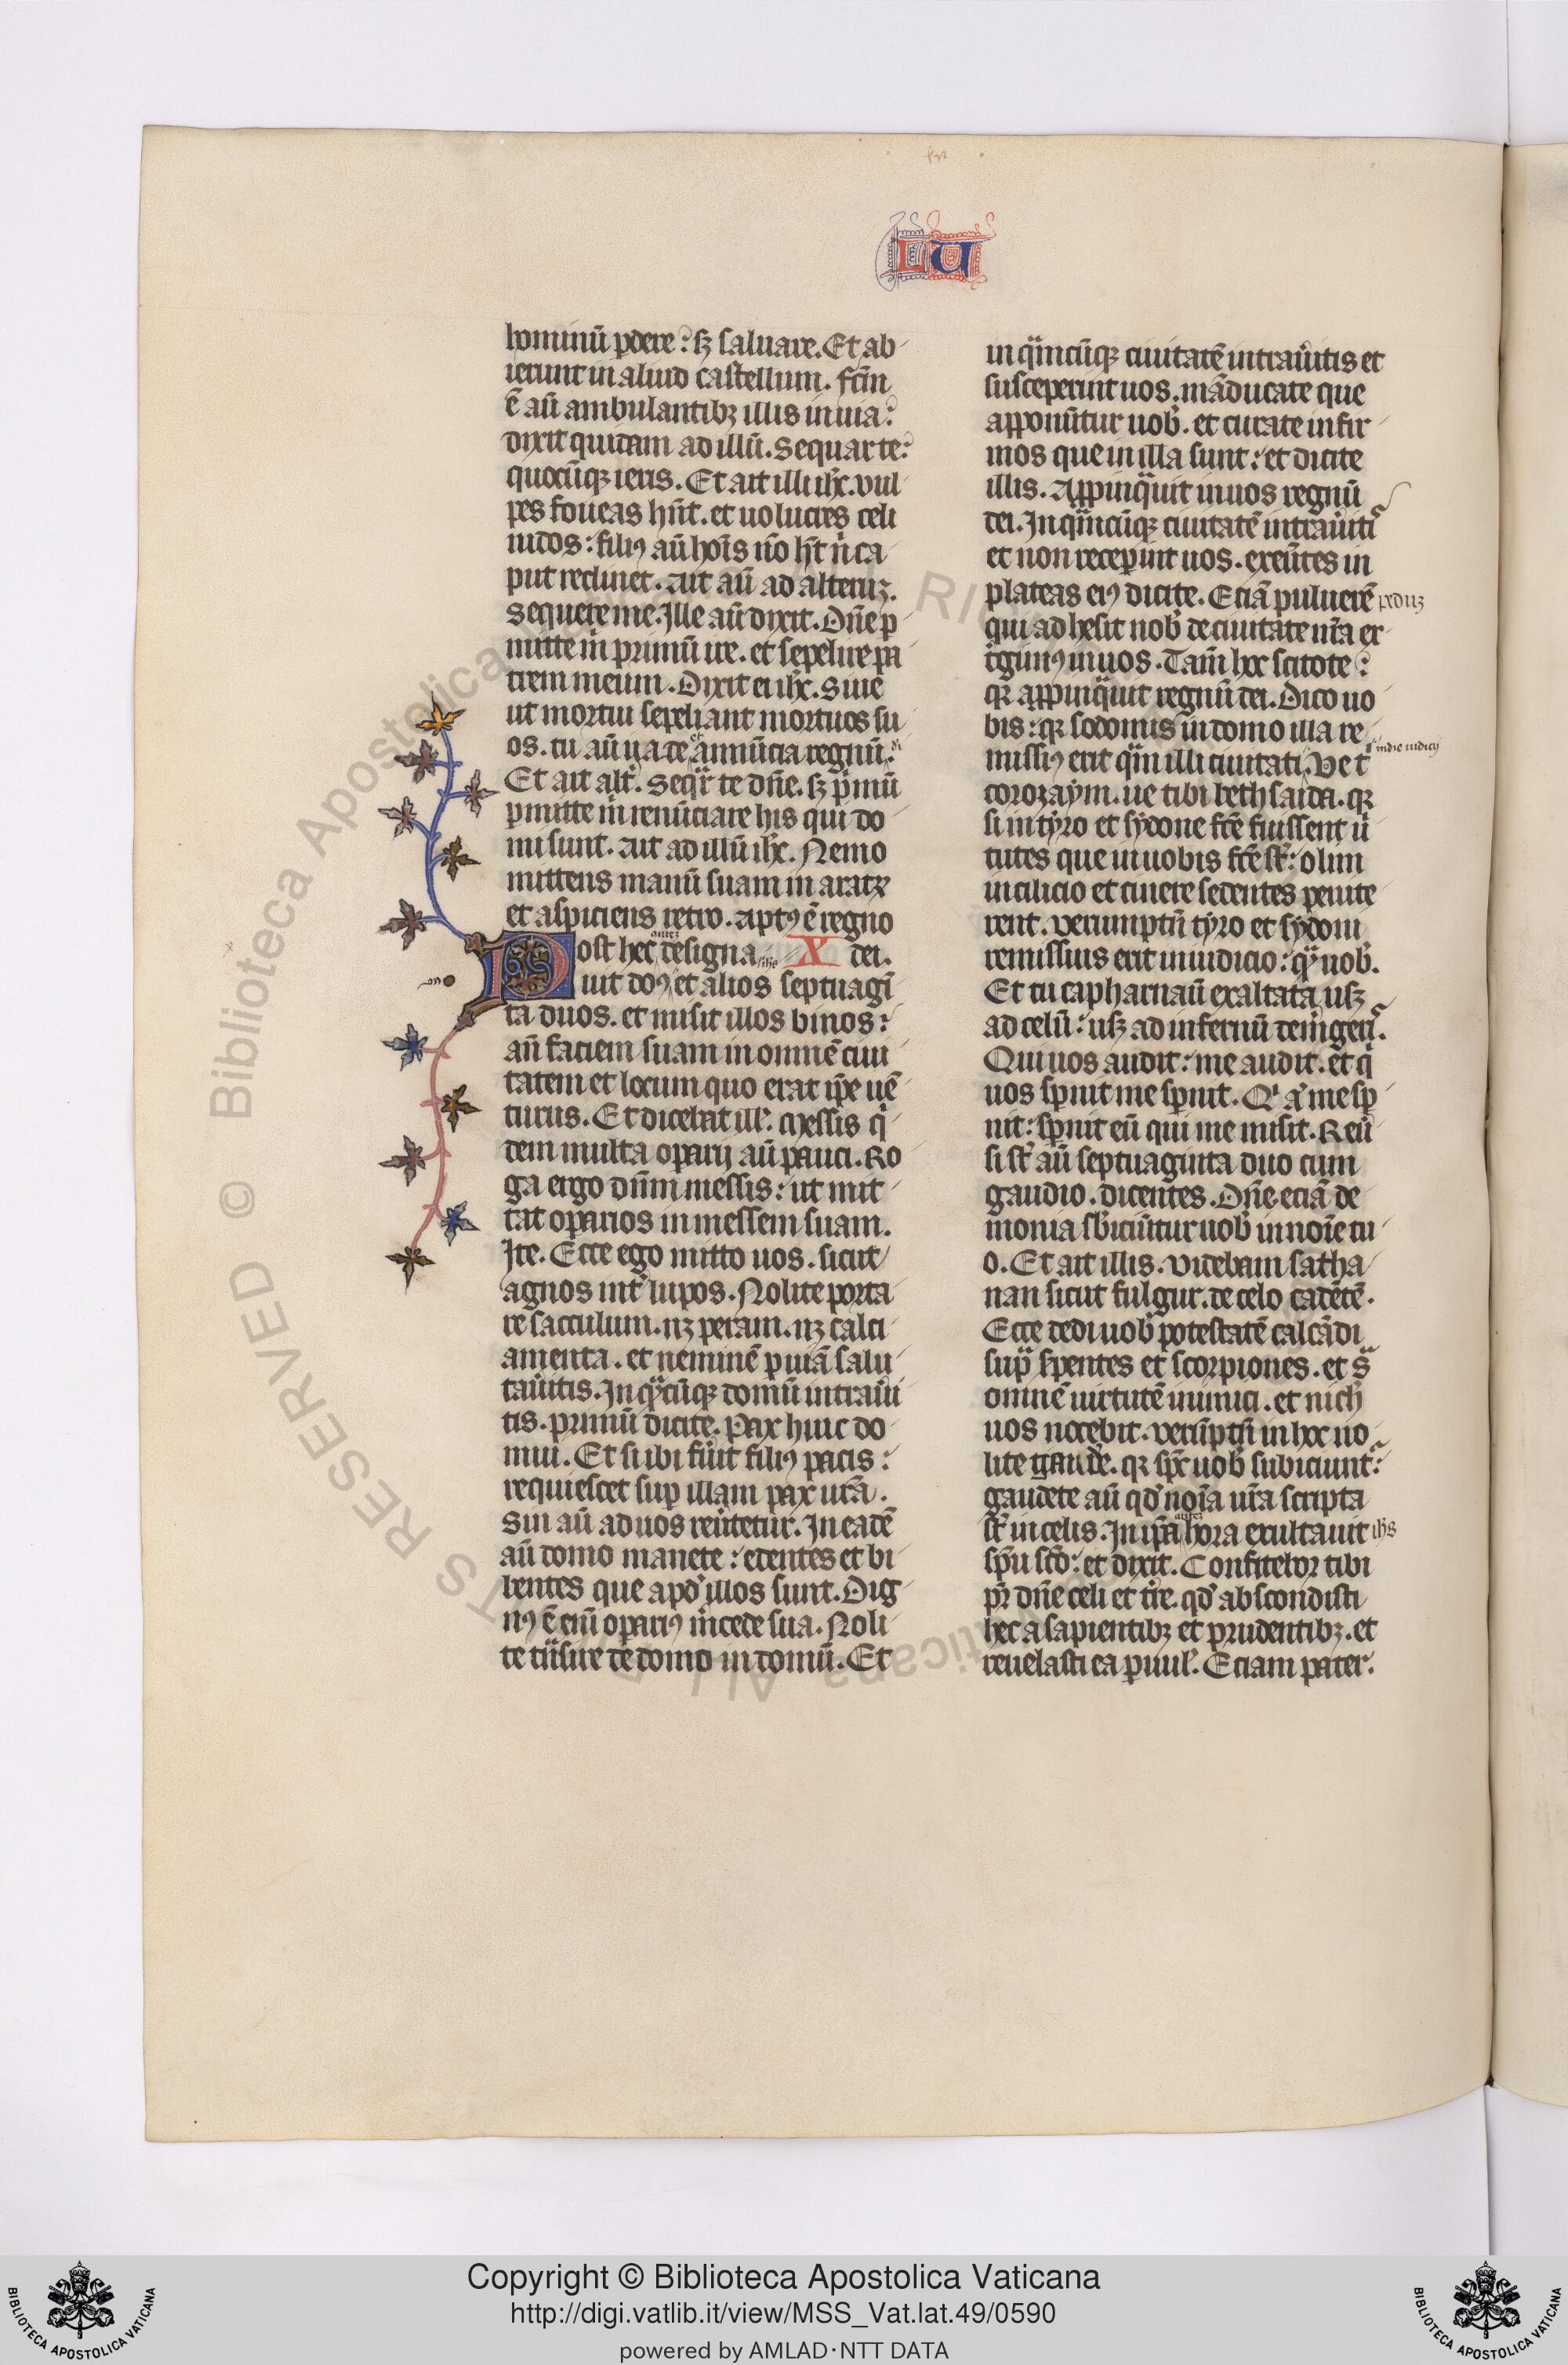 LU
hominū ꝑdere: sꝫ saluare. Et ab
ierunt in aliud castellum. fc̄m
ē aū ambulantibꝫ illis in uia:
dixit quidam ad illū. Sequar te:
quocūqꝫ ieris. Et ait illi ih̄c. Vul
pes foueas hn̄t. et uolucres celi
nidos: filiꝰ aū hoīs nō ht̄ u̇ ca
put reclinet. Ait aū ad alteruꝫ.
Sequere me. Ille aū dixit. Dn̄e ꝑ
mitte ṁ primū ire. et sepelire pa
trem meum. Dixit ei ih̄c. Sine
ut mortui sepeliant mortuos su
os. tu aū uade et annūcia regnū. dī
Et ait alt̓. Seqr̄ te dn̄e. sꝫ p̓mū
ꝑmitte ṁ renūciare his qui do
mi sunt. Ait ad illū ih̄c. Nemo
mittens manū suam in aratꝝ
et aspiciens retro. aptꝰ ē regno
Post hec autē designa X dei.
uit dn̄s et alios septuagī
ta duos. et misit illos binos:
an̄ faciem suam in omnē ciui
tatem et locum quo erat ip̄e uē
turus. Et dicebat ill̓. Messis q̓
dem multa oꝑarij aū pauci. Ro
ga ergo dn̄m messis: ut mit
tat oꝑarios in messem suam.
Ite. Ecce ego mitto uos. sicut
agnos int̓ lupos. Nolite porta
re sacculum. nꝫ peram. nꝫ calci
amenta. et neminē ꝑ uiā salu
tau̓itis. In qͣcūqꝫ domū intrau̓i
tis. primū dicite. Pax huic do
mui. Et si ibi fu̓it filiꝰ pacis:
requiescet suꝑ illam pax ur̄a.
Sin aū ad uos reu̓tetur. In eadē
aū domo manete: edentes et bi
bentes que apd̓ illos sunt. Dig
nꝰ ē enī oꝑariꝰ m̓cede sua. Noli
te tͣnsire de domo in domū. Et
in qͣmcūqꝫ ciuitatē intrau̓itis et
susceperint uos. māducate que
apponūtur uob̓. et curate infir
mos que in illa sunt: et dicite
illis. Appinq̓uit in uos regnū
dei. In qͣmcūqꝫ ciuitatē intrau̓iti᷒
et non receꝑint uos. exeūtes in
plateas eiꝰ dicite. Eciā puluerē pedū
qui adhesit nob̓ de ciuitate ur̄a ex
t̓gimꝰ in uos. Tam̄ hoc scitote:
qꝛ appinq̓uit regnū dei. Dico uo
bis: qꝛ sodomis in domo illa re in die iudicij
missiꝰ erit qͣm illi ciuitati. Ve t̓
corozaym. ue tibi bethsaida. qꝛ
si in tyro et sydone fc̄e fuissent u̓
tutes que in uobis fc̄e st̄: olim
in cilicio et cinere sedentes penite
rent. Verumptn̄ tyro et sydoni
remissius erit in iudicio: qͣ uob̓.
Et tu capharnaū exaltata usqꝫ
ad celū: usqꝫ ad infernū dem̓geri᷒.
Qui uos audit: me audit. et q̓
uos sꝑnit me sꝑnit. Q̓ aū me sꝑ
nit: sꝑnit eū qui me misit. Reu̓
si st̄ aū septuaginta duo cum
gaudio. dicentes. Dn̄e. eciā de
monia sb̓iciūtur nob̓ in noīe tu
o. Et ait illis. Videbam satha
nan sicut fulgur. de celo cadētē.
Ecce dedi uob̓ potestatē calcādi
supͣ sꝑentes et scorpiones. et sͣ
omnē uirtutē inimici. et nich̓
uos nocebit. Verūptn̄ in hoc no
lite gaude̓. qꝛ sp̄c uob̓ subiciunt᷒:
gaudete aū qd̓ noīa ur̄a scripta
st̄ in celis. In ip̄a autē hora exultauit ihs
sp̄u sc̄o: et dixit. Confiteor tibi
pr̄ dn̄e celi et tr̄e. qd̓ abscondisti
hec a sapientibꝫ et prudentibꝫ. et
reuelasti ea ꝑuul̓. Eciam pater.
© Biblioteca Apostolica Vaticana ALL RIGHTS RESERVED
Copyright © Biblioteca Apostolica Vaticana
http://digi.vatlib.it/view/MSS_Vat.lat.49/0590
powered by AMLAD·NTT DATA
BIBLIOTECA APOSTOLICA VATICANA
BIBLIOTECA APOSTOLICA VATICANA